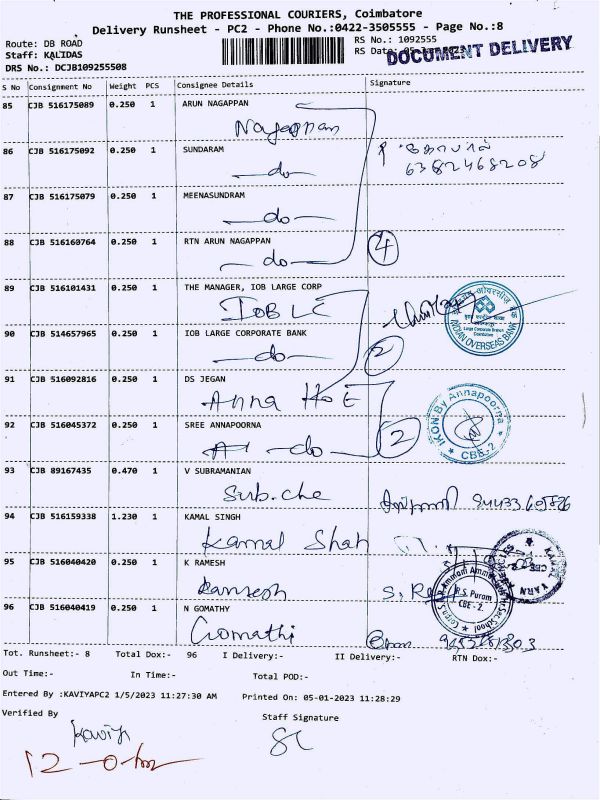 THE PROFESSIONAL COURIERS, Coimbatore
Delivery Runsheet - PC2 - Phone No.:0422-3505555 - Page No.:8
Route: DB ROAD
RS No.: 1092555
Staff: KALIDAS
RS Date: 05-Jan-2023
DOCUMENT DELIVERY
DRS No.: DCJB109255508
S No Consignment No Weight PCS Consignee Details Signature
85 CJB 516175089 0.250 1 ARUN NAGAPPAN
Nagappan
86 CJB 516175092 0.250 1 SUNDARAM
கோபால்
6382468208
do
87 CJB 516175079 0.250 1 MEENASUNDRAM
do
88 CJB 516160764 0.250 1 RTN ARUN NAGAPPAN
do 4
89 CJB 516101431 0.250 1 THE MANAGER, IOB LARGE CORP
IOB LC
INDIAN OVERSEAS BANK
90 CJB 514657965 0.250 1 IOB LARGE CORPORATE BANK
do 2
91 CJB 516092816 0.250 1 DS JEGAN
Anna
IKON By Annapoorna
CBE-2
92 CJB 516045372 0.250 1 SREE ANNAPOORNA
do 2
93 CJB 89167435 0.470 1 V SUBRAMANIAN
94 CJB 516159338 1.230 1 KAMAL SINGH
Kamal Shah
95 CJB 516040420 0.250 1 K RAMESH
Ramesh
R.S. Puram
CBE - 2.
96 CJB 516040419 0.250 1 N GOMATHY
Gomathi
Tot. Runsheet:- 8 Total Dox:- 96 I Delivery:- II Delivery:- RTN Dox:-
Out Time:- In Time:- Total POD:-
Entered By :KAVIYAPC2 1/5/2023 11:27:30 AM Printed On: 05-01-2023 11:28:29
Verified By Staff Signature
Kaviya